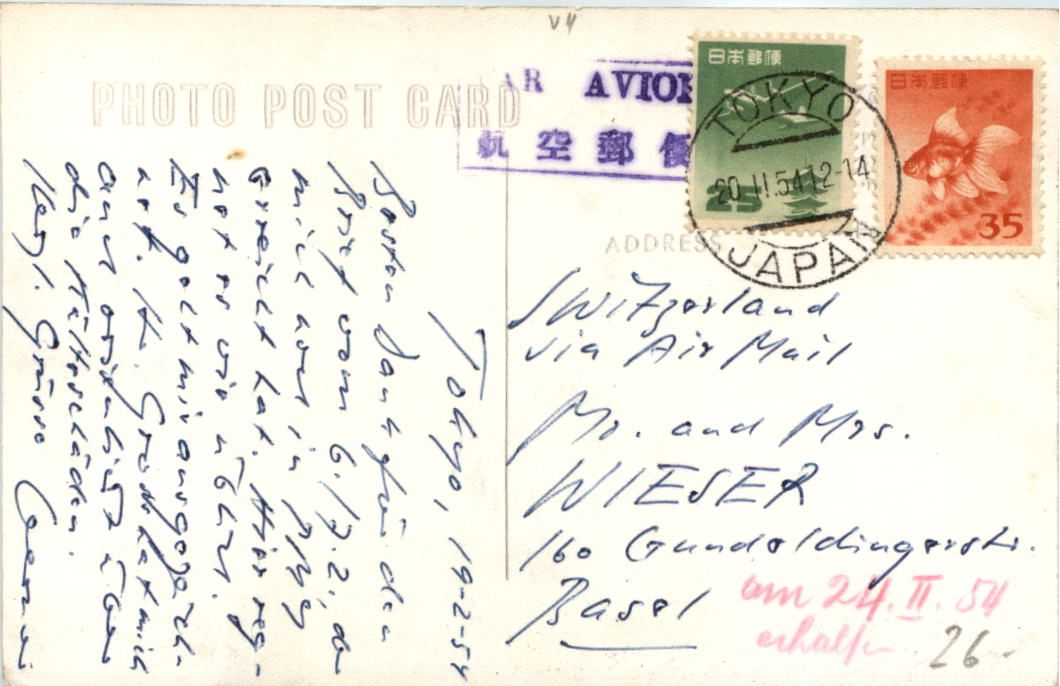 V4
PHOTO POST CARD
PAR AVION
航空郵便
日本郵便
25
日本郵便
35
TOKYO
20.II.54 12-14
JAPAN
ADDRESS
Tokyo, 19-2-54
Besten Dank für den
Brief vom 6./7.2., der
mich hier in
erreicht hat. Hier reg-
net es wie
Es geht mir ausgezeich-
net. Fr. Grossket mich
aus
die Kälteschäden.
Herzl. Grüsse
Switzerland
via Air Mail
Mr. and Mrs.
WIESER
160 Gundeldingerstr.
Basel
am 24.II.54
erhalten
26-